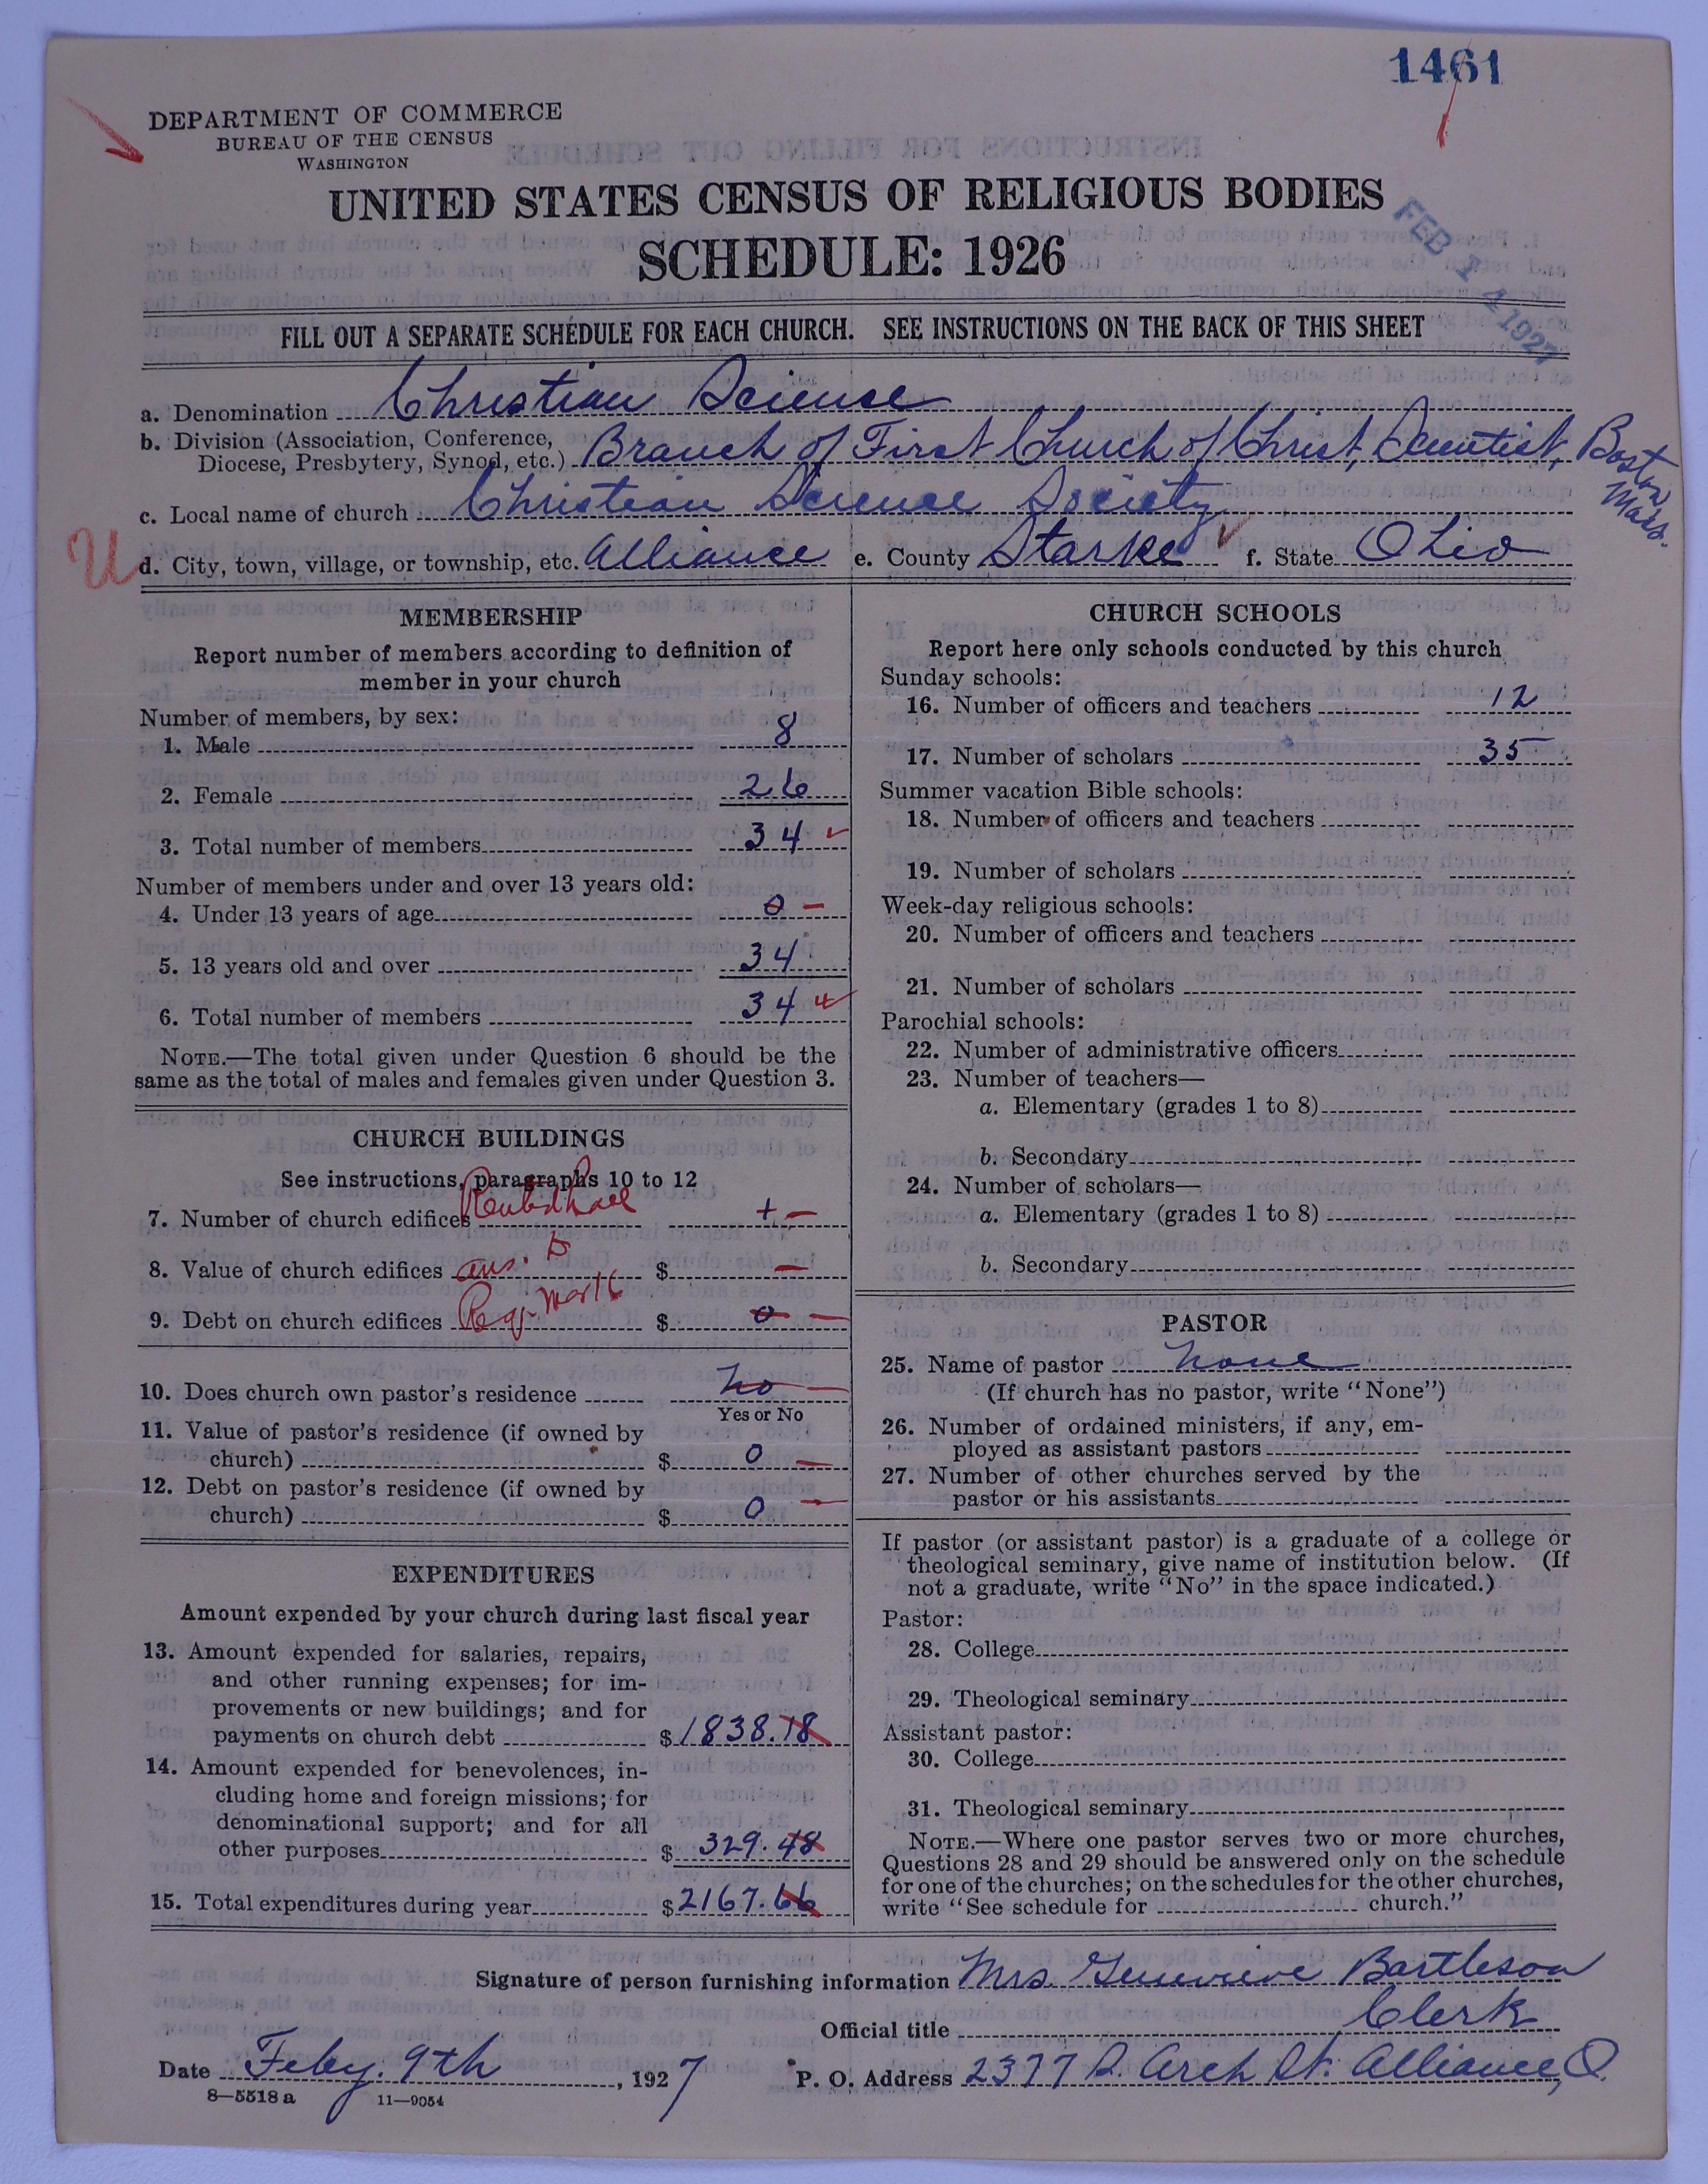 1461
DEPARTMENT OF COMMERCE
BUREAU OF THE CENSUS
WASHINGTON
UNITED STATES CENSUS OF RELIGIOUS BODIES
SCHEDULE: 1926
FEB 14 1927
FILL OUT A SEPARATE SCHEDULE FOR EACH CHURCH. SEE INSTRUCTIONS ON THE BACK OF THIS SHEET
a. Denomination Christian Science
b. Division (Association, Conference,
Diocese, Presbytery, Synod, etc.) Branch of First Church of Christ, Scientist, Boston
Mass.
c. Local name of church Christian Science Society
U d. City, town, village, or township, etc. Alliance e. County Starke f. State Ohio
MEMBERSHIP
Report number of members according to definition of
member in your church
Number of members, by sex:
1. Male 8
2. Female 26
3. Total number of members 34
Number of members under and over 13 years old:
4. Under 13 years of age 0 —
5. 13 years old and over 34
6. Total number of members 34
NOTE.—The total given under Question 6 should be the
same as the total of males and females given under Question 3.
CHURCH BUILDINGS
See instructions, paragraphs 10 to 12
7. Number of church edifices Rented hall + —
8. Value of church edifices ans. to $ —
9. Debt on church edifices Req. Mar 16 $ 0 —
10. Does church own pastor's residence No —
Yes or No
11. Value of pastor's residence (if owned by
church) $ 0 —
12. Debt on pastor's residence (if owned by
church) $ 0 —
EXPENDITURES
Amount expended by your church during last fiscal year
13. Amount expended for salaries, repairs,
and other running expenses; for im-
provements or new buildings; and for
payments on church debt $ 1838.18
14. Amount expended for benevolences, in-
cluding home and foreign missions; for
denominational support; and for all
other purposes $ 329.48
15. Total expenditures during year $ 2167.66
CHURCH SCHOOLS
Report here only schools conducted by this church
Sunday schools:
16. Number of officers and teachers 12
17. Number of scholars 35
Summer vacation Bible schools:
18. Number of officers and teachers
19. Number of scholars
Week-day religious schools:
20. Number of officers and teachers
21. Number of scholars
Parochial schools:
22. Number of administrative officers
23. Number of teachers—
a. Elementary (grades 1 to 8)
b. Secondary
24. Number of scholars—
a. Elementary (grades 1 to 8)
b. Secondary
PASTOR
25. Name of pastor None
(If church has no pastor, write "None")
26. Number of ordained ministers, if any, em-
ployed as assistant pastors
27. Number of other churches served by the
pastor or his assistants
If pastor (or assistant pastor) is a graduate of a college or
theological seminary, give name of institution below. (If
not a graduate, write "No" in the space indicated.)
Pastor:
28. College
29. Theological seminary
Assistant pastor:
30. College
31. Theological seminary
NOTE.—Where one pastor serves two or more churches,
Questions 28 and 29 should be answered only on the schedule
for one of the churches; on the schedules for the other churches,
write "See schedule for church."
Signature of person furnishing information Mrs. Genevieve Bartleson
Official title Clerk
Date Feby. 9th, 1927 P. O. Address 2377 S. Arch St. Alliance, O.
8—5518 a 11—9054